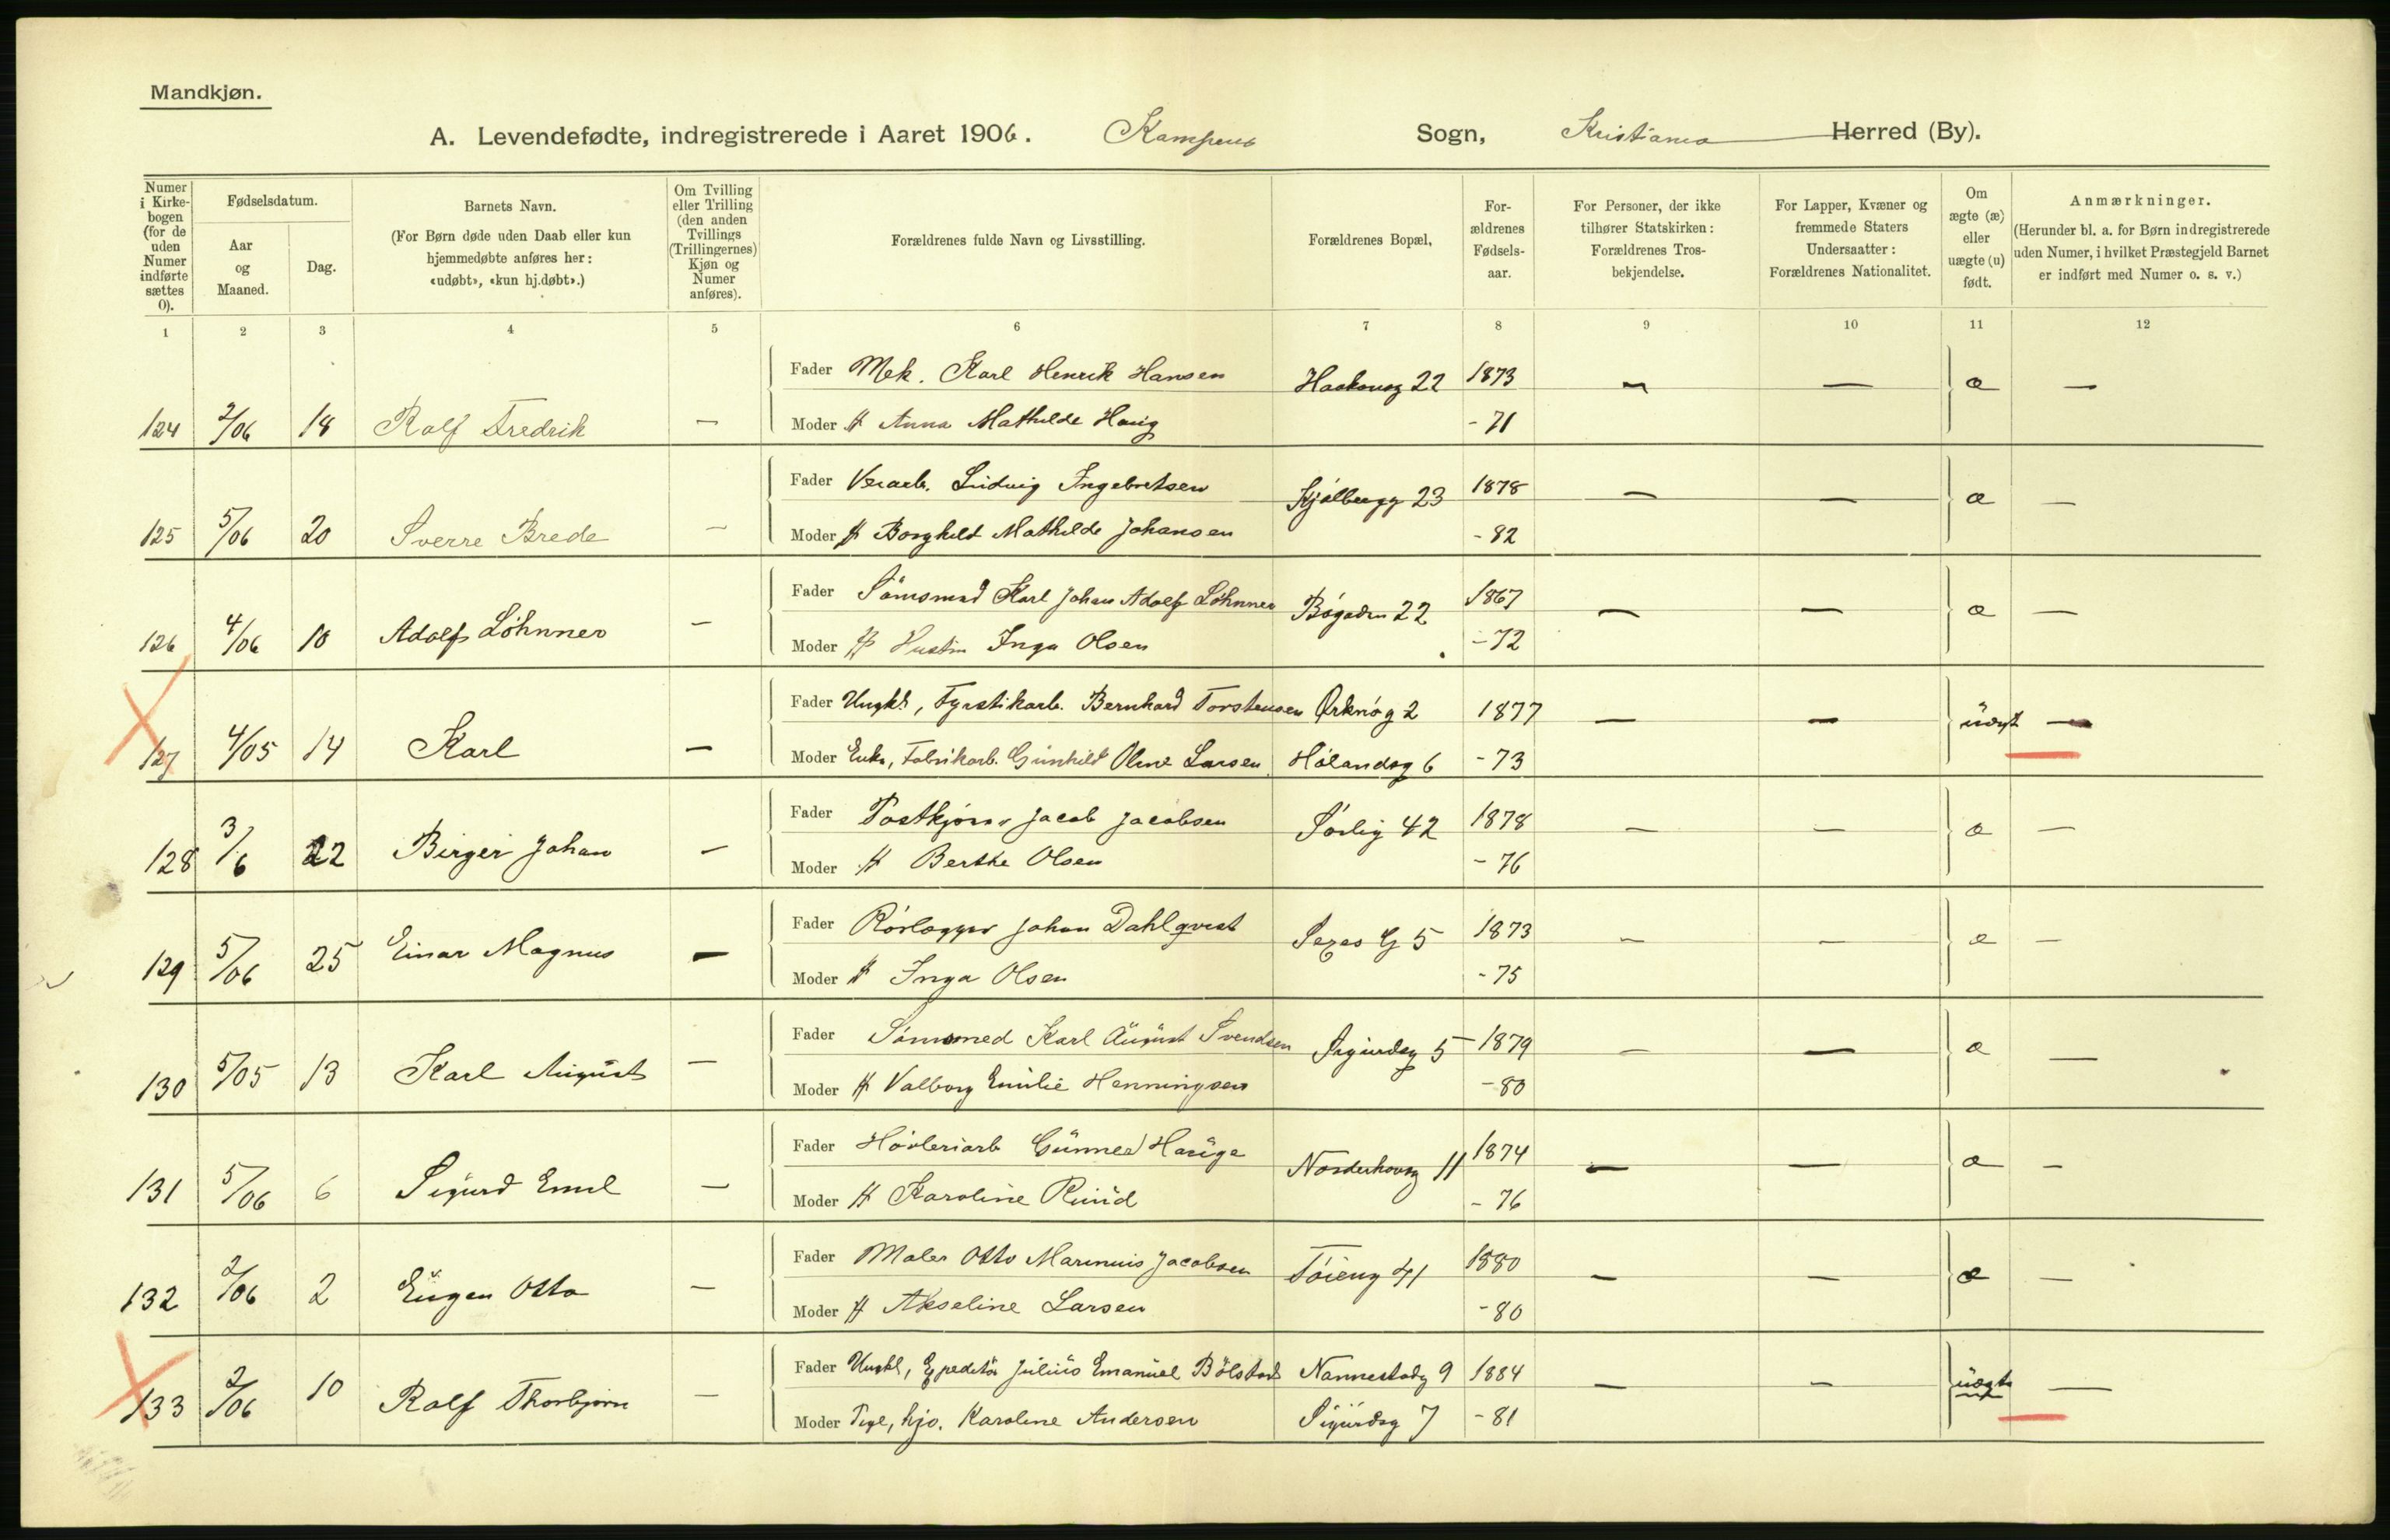 Mandkjøn.
A. Levendefødte, indregistrerede i Aaret 1906. Kampens Sogn, Kristiania Herred (By).
Numer i Kirke-bogen (for de uden Numer indførte sættes 0).
Fødselsdatum.
Aar og Maaned.
Dag.
Barnets Navn.
(For Børn døde uden Daab eller kun hjemmedøbte anføres her: «udøbt», «kun hj.døbt».)
Om Tvilling eller Trilling (den anden Tvillings (Trillingernes) Kjøn og Numer anføres).
Forældrenes fulde Navn og Livsstilling.
Forældrenes Bopæl,
For-ældrenes Fødsels-aar.
For Personer, der ikke tilhører Statskirken: Forældrenes Tros-bekjendelse.
For Lapper, Kvæner og fremmede Staters Undersaatter: Forældrenes Nationalitet.
Om ægte (æ) eller uægte (u) født.
Anmærkninger.
(Herunder bl. a. for Børn indregistrerede uden Numer, i hvilket Præstegjeld Barnet er indført med Numer o. s. v.)
1 2 3 4 5 6 7 8 9 10 11 12
Fader Mek. Karl Henrik Hansen Haakonsg 22 1873 — — æ —
124 2/06 18 Rolf Fredrik — Moder H Anna Mathilde Haug - 71
Fader Verarb. Ludvig Ingebretsen Kjølbergg 23 1878 — — æ —
125 5/06 20 Sverre Brede — Moder H Borghild Mathilde Johansen - 82
Fader Sømsmed Karl Johan Adolf Löhnner Bøgaden 22 1867 — — æ —
126 4/06 10 Adolf Löhnner — Moder H Hustru Inga Olsen - 72
Fader Ungkl, Fyrstikarb. Bernhard Torstensen Ørknøg 2 1877 — — uægt —
127 4/05 14 Karl — Moder Enke, Fabrikarb. Gunhild Oline Larsen Hølandsg 6 - 73
Fader Postkjører Jacob Jacobsen Sørlig 42 1878 — — æ —
128 3/6 22 Birger Johan — Moder H Berthe Olsen - 76
Fader Rørlægger Johan Dahlqvist G 5 1873 — — æ —
129 5/06 25 Einar Magnus — Moder H Inga Olsen - 75
Fader Sømsmed Karl August Svendsen Sigurdsg 5 1879 — — æ —
130 5/05 13 Karl August — Moder H Valborg Emilie Henningsen - 80
Fader Høvleriarb Gunnar Hauge Norderhovsg 11 1874 — — æ —
131 5/06 6 Sigurd Emil — Moder H Karoline Ruud - 76
Fader Maler Otto Marinius Jacobsen Tøieng 41 1880 — — æ —
132 2/06 2 Eugen Otto — Moder H Akseline Larsen - 80
Fader Ungkl, Expeditør Julius Emanuel Bölstad Nannestadg 9 1884 — — uægte —
133 2/06 10 Rolf Thorbjørn — Moder Pige, hjv. Karoline Andersen Sigurdsg 7 - 81